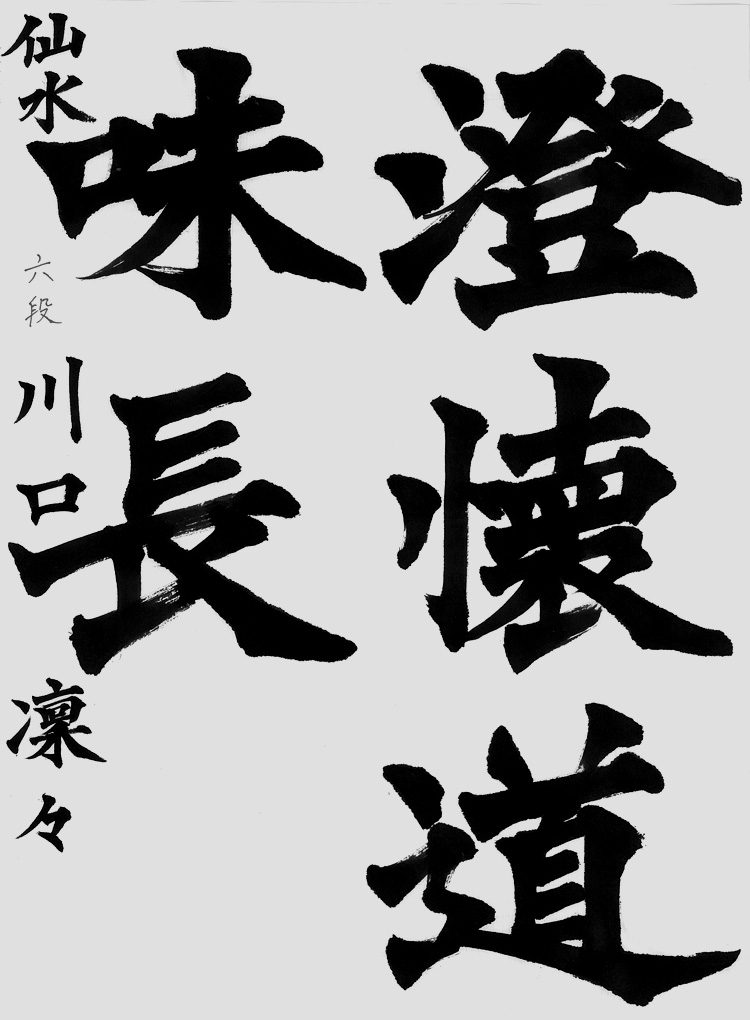 澄懐道
味長
仙水 六段 川口凜々